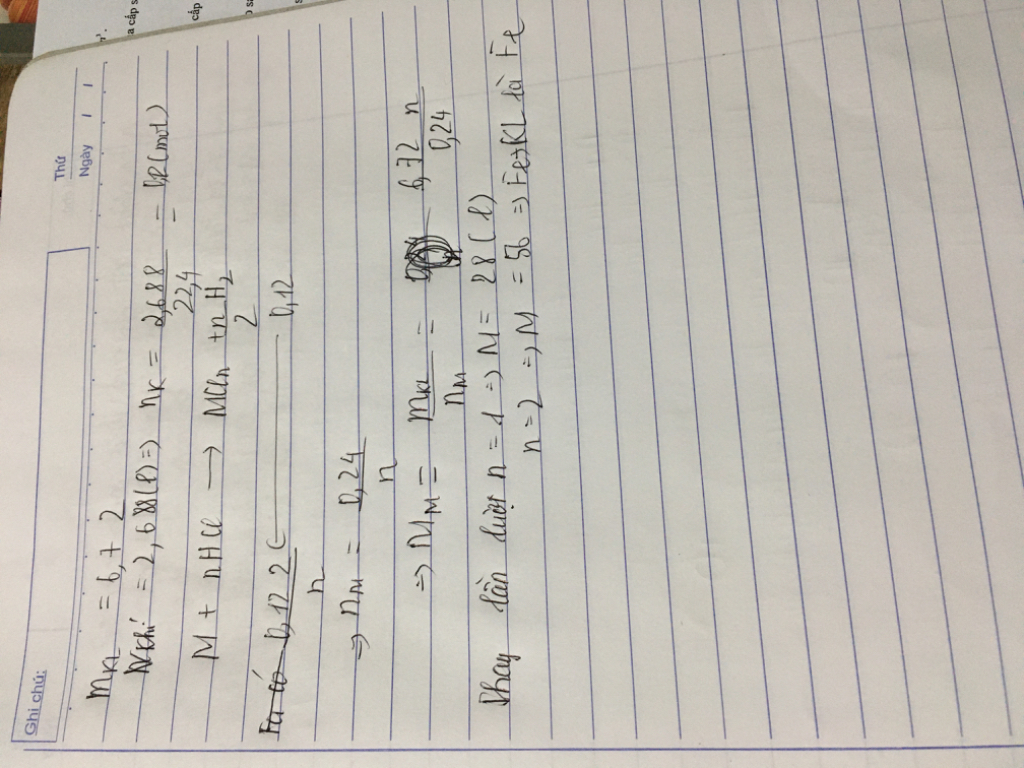 Ghi chú:
Thứ
Ngày / /
a cấp s
cấp
m_KL = 6,72
V khí = 2,688(l) => n_K = 2,688 / 22,4 =
M + nHCl → MCln + n/2 H2
Ta có 0,12.2 / n ← 0,12
=> n_M = 0,24 / n
=> M_M = m_KL / n_M = 6,72 n / 0,24
Thay lần lượt n = 1 => M = 28 (l)
n = 2 => M = 56 => Fe => KL là Fe